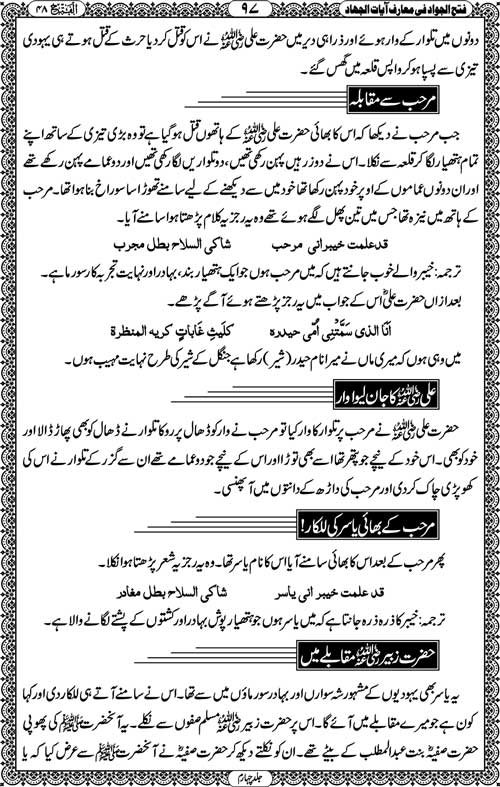 فتح الجواد فی معارف آیات الجهاد
۹۷
الفتح ۴۸
دونوں میں تلوار کے وار ہوئے اور ذرا ہی دیر میں حضرت علی رضی اللہ عنہ نے اس کو قتل کر دیا حرث کے قتل ہوتے ہی یہودی
تیزی سے پسپا ہو کر واپس قلعہ میں گھس گئے۔
مرحب سے مقابلہ
جب مرحب نے دیکھا کہ اس کا بھائی حضرت علی رضی اللہ عنہ کے ہاتھوں قتل ہو گیا ہے تو وہ بڑی تیزی کے ساتھ اپنے
تمام ہتھیار لگا کر قلعہ سے نکلا۔ اس نے دو زرہیں پہن رکھی تھیں، دو تلواریں لگا رکھی تھیں اور دو عمامے پہن رکھے تھے
اور ان دونوں عماموں کے اوپر خود پہن رکھا تھا خود میں سے دیکھنے کے لیے سامنے تھوڑا سا سوراخ بنا ہوا تھا۔ مرحب
کے ہاتھ میں نیزہ تھا جس میں تین پھل لگے ہوئے تھے وہ یہ رجزیہ کلام پڑھتا ہوا سامنے آیا۔
قد علمت خیبر انی مرحب شاکی السلاح بطل مجرب
ترجمہ: خیبر والے خوب جانتے ہیں کہ میں مرحب ہوں جو ایک ہتھیار بند، بہادر اور نہایت تجربہ کار سورما ہے۔
بعد ازاں حضرت علیؓ اس کے جواب میں یہ رجز پڑھتے ہوئے آگے بڑھے۔
اَنَا الذی سَمَّتْنِی اُمّی حیدره کلَیثِ غَاباتٍ کریه المنظرة
میں وہی ہوں کہ میری ماں نے میرا نام حیدر (شیر) رکھا ہے جنگل کے شیر کی طرح نہایت مہیب ہوں۔
علی رضی اللہ عنہ کا جان لیوا وار
حضرت علی رضی اللہ عنہ نے مرحب پر تلوار کا وار کیا تو مرحب نے وار کو ڈھال پر روکا تلوار نے ڈھال کو بھی پھاڑ ڈالا اور
خود کو بھی۔ اس خود کے نیچے جو پتھر تھا اسے بھی توڑا اور اس کے نیچے جو دو عمامے تھے ان سے گزر کے تلوار نے اس کی
کھوپڑی چاک کر دی اور مرحب کی داڑھ کے دانتوں میں آ پھنسی۔
مرحب کے بھائی یاسر کی للکار!
پھر مرحب کے بعد اس کا بھائی سامنے آیا اس کا نام یاسر تھا۔ وہ یہ رجزیہ شعر پڑھتا ہوا نکلا۔
قد علمت خیبر انی یاسر شاکی السلاح بطل مغادر
ترجمہ: خیبر کا ذرہ ذرہ جانتا ہے کہ میں یاسر ہوں جو ہتھیار پوش بہادر اور کشتوں کے پشتے لگانے والا ہے۔
حضرت زبیر رضی اللہ عنہ مقابلے میں
یہ یاسر بھی یہودیوں کے مشہور شہ سواراں اور بہادر سورماؤں میں سے تھا۔ اس نے سامنے آتے ہی للکار دی اور کہا
کون ہے جو میرے مقابلے میں آئے گا۔ اس پر حضرت زبیر رضی اللہ عنہ مسلم صفوں سے نکلے۔ یہ آنحضرت ﷺ کی پھوپی
حضرت صفیہؓ بنت عبدالمطلب کے بیٹے تھے۔ ان کو نکلتے دیکھ کر حضرت صفیہؓ نے آنحضرت ﷺ سے عرض کیا کہ یا
جلد چہارم